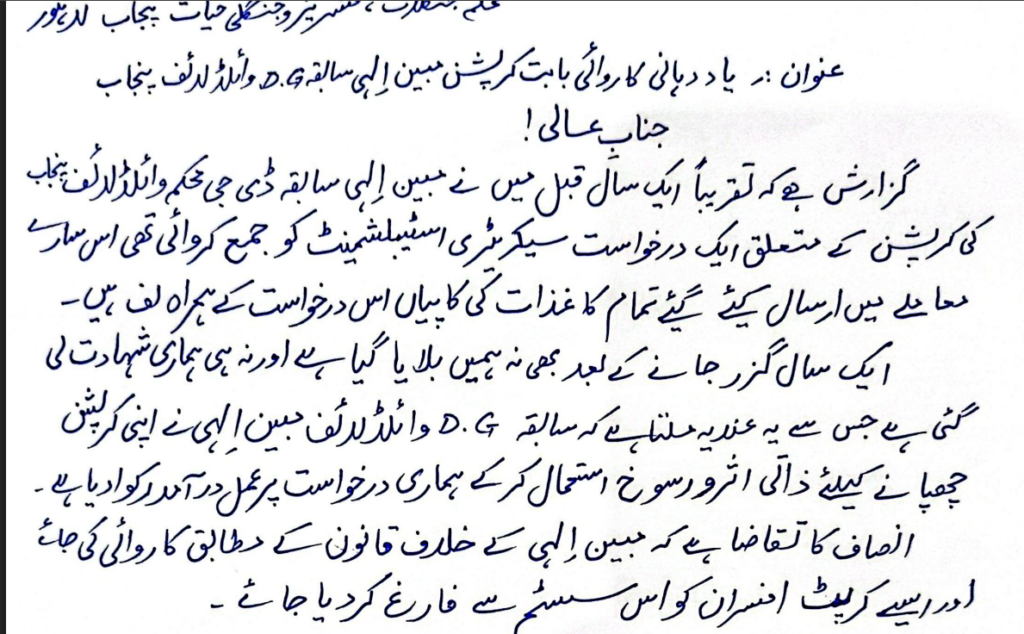 محکمہ جنگلات، فشریز و جنگلی حیات پنجاب لاہور
عنوان :ر یاد دہانی کاروائی بابت کرپشن مبین اِلہی سابقہ D.G وائلڈ لائف پنجاب
جنابِ عالی !
گزارش ہے کہ تقریباً ایک سال قبل میں نے مبین اِلہی سابقہ ڈی جی محکمہ وائلڈ لائف پنجاب
کی کرپشن کے متعلق ایک درخواست سیکریٹری اسٹیبلشمینٹ کو جمع کروائی تھی اس سارے
معاملے میں ارسال کیئے گیئے تمام کاغذات کی کاپیاں اس درخواست کے ہمراہ لف ہیں۔
ایک سال گزر جانے کے بعد بھی نہ ہمیں بلایا گیا ہے اور نہ ہی ہماری شہادت لی
گئی ہے جس سے یہ عندیہ ملتا ہے کہ سابقہ D.G وائلڈ لائف مبین اِلہی نے اپنی کرپشن
چھپانے کیلئے ذاتی اثرو رسوخ استعمال کر کے ہماری درخواست پر عمل در آمد رکوا دیا ہے۔
انصاف کا تقاضا ہے کہ مبین اِلہی کے خلاف قانون کے مطابق کاروائی کی جائے
اور ایسے کرپٹ افسران کو اس سسٹم سے فارغ کر دیا جائے ۔